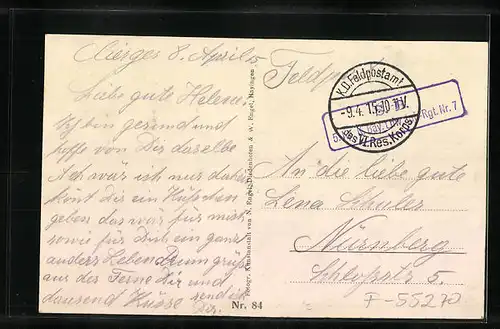 Cierges 8. April 15
Feldpost
Liebe gute Helene
Ich bin gesund und
hoffe von Dir dasselbe
Ach wär ich nur daheim
könt dir ein Küßchen
geben das wär für mich
sowie für Dich ein ganz
anders Leben Drum grüßt
aus der Ferne Dir und
tausend Küsse sendich
Dir.
Photogr. Kunstanstalt von N. Engel, Diedenhofen & W. Engel, Hayingen
Nr. 84
K.D. Feldpostamt
-9.4.15.10-11V.
des VI. Res. Korps.
Rgt. Nr. 7
An die liebe gute
Lena Schuler
Nürnberg
Schloßstr 5.
F-55270